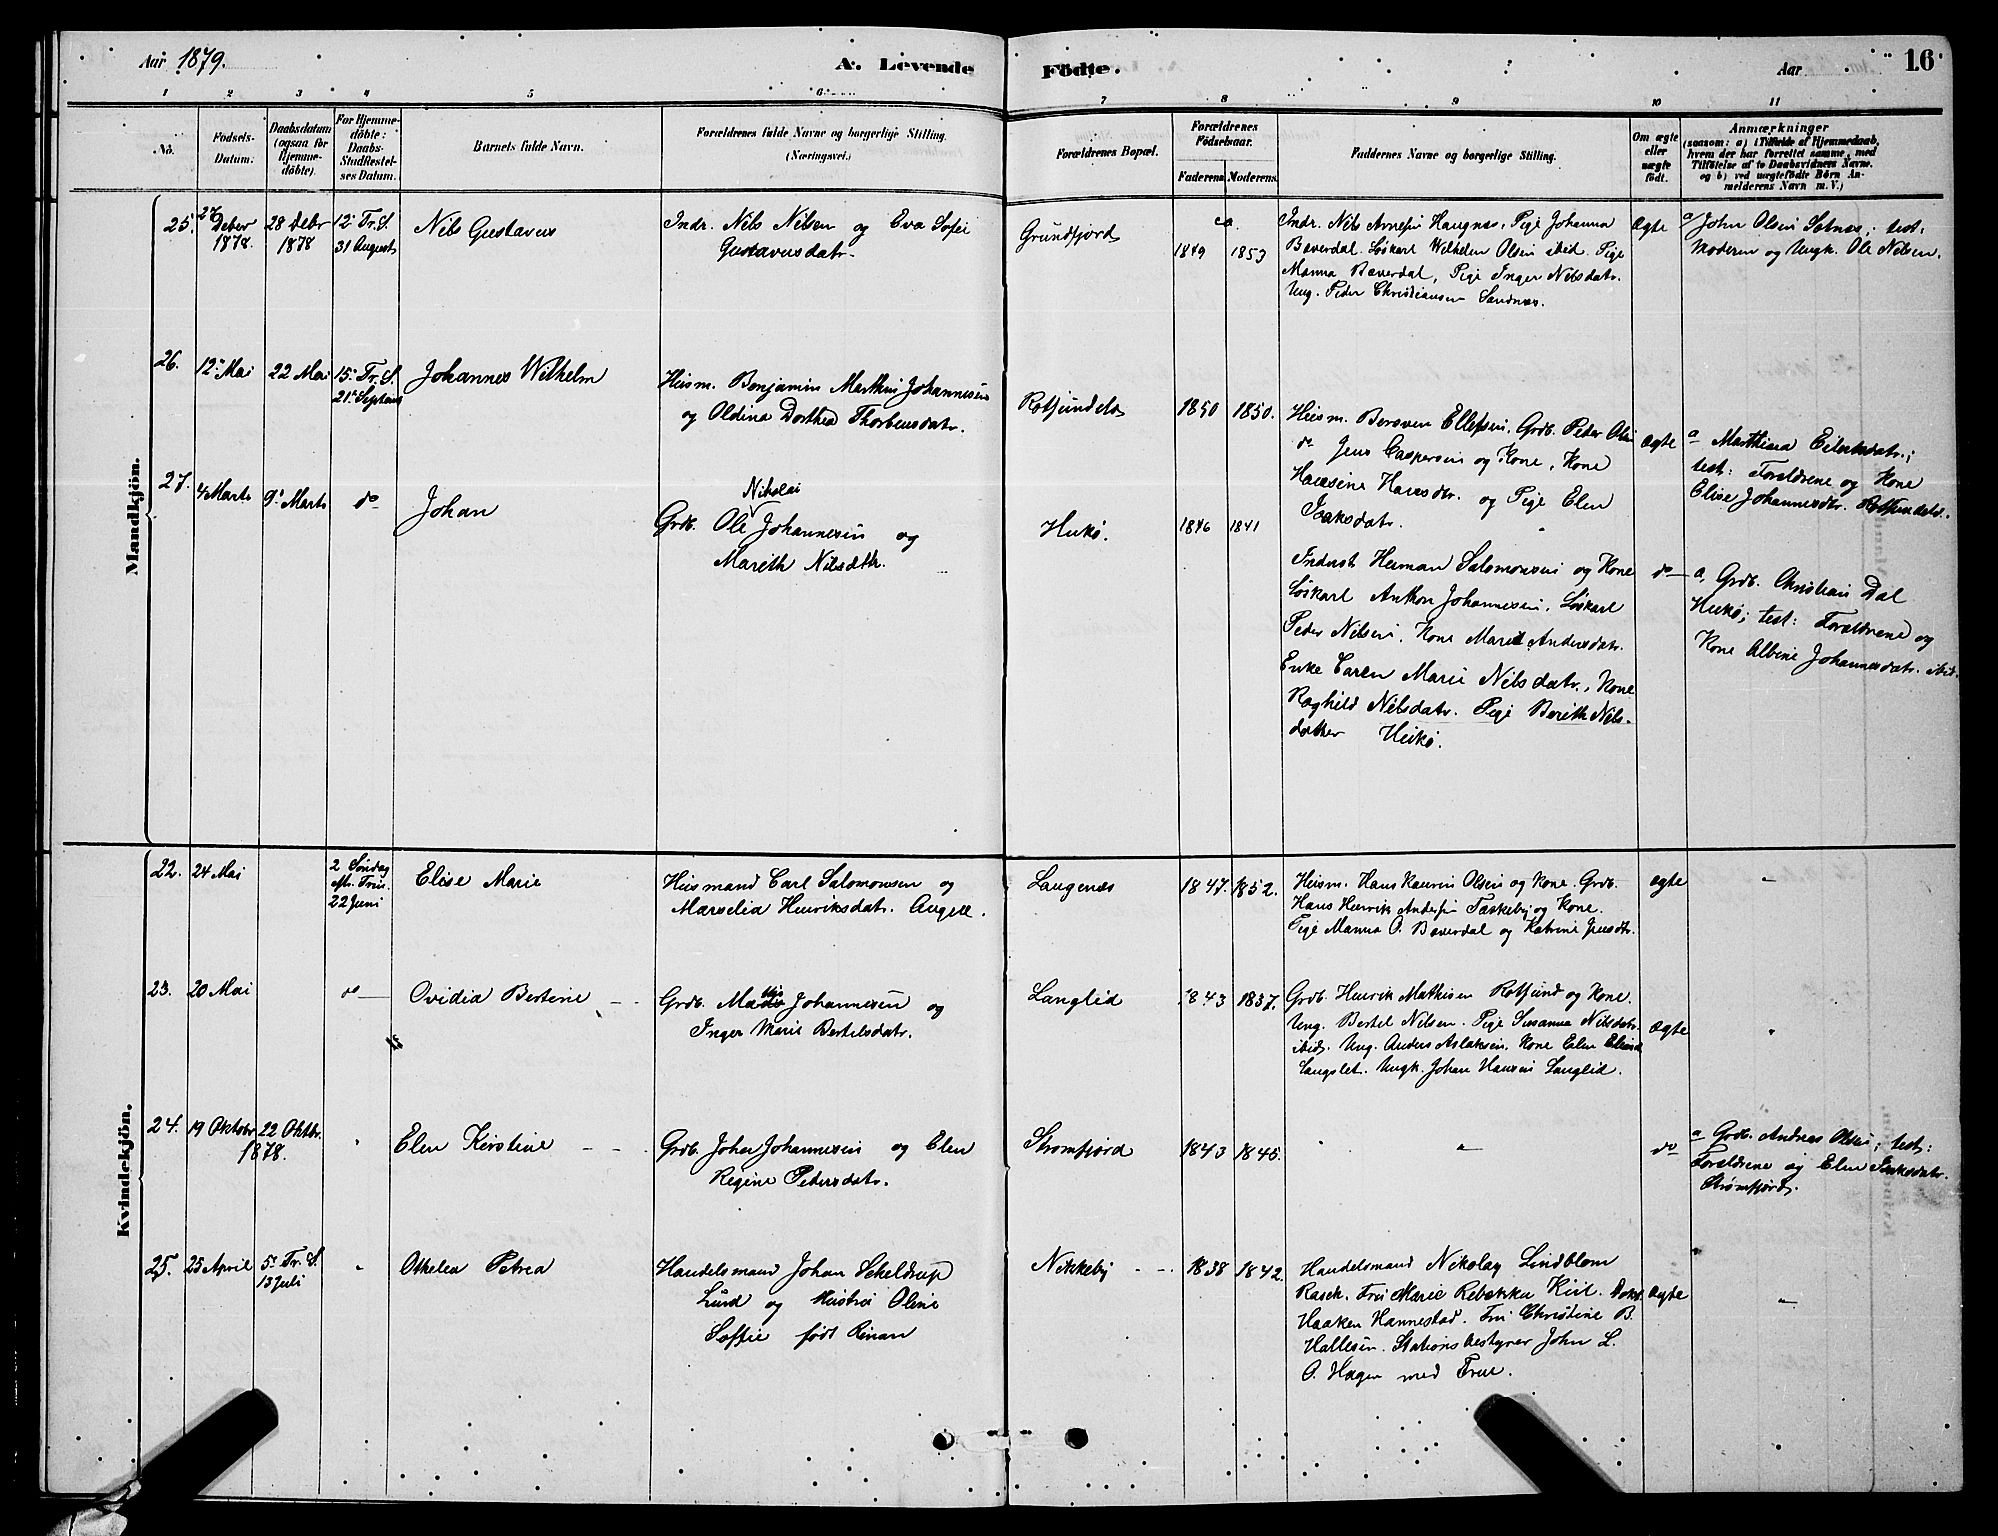 Aar 1879.
A. Levende Födte.
Aar
16
1 2 3 4 5 6 7 8 9 10 11
No.
Födsels-
Datum.
Daabsdatum
(ogsaa for
Hjemme-
döbte).
For Hjemme-
döbte:
Daabs-
Stadfæstel-
ses Datum.
Barnets fulde Navn.
Forældrenes fulde Navne og borgerlige Stilling.
(Næringsvei.)
Forældrenes Bopæl.
Forældrenes
Födselsaar.
Faderens. Moderens.
Faddernes Navne og borgerlige Stilling.
Om ægte
eller
uægte
födt.
Anmærkninger
(saasom: a) i Tilfælde af Hjemmedaab,
hvem der har forrettet samme, med
Tilföielse af to Daabsvidners Navne,
og b) ved uægtefödte Börn An-
melderens Navn m. V.)
Mandkjön.
25. 27 Deber 1878. 28 Debr 1878 12. Tr. S. 31 August
Nils Gustavus
Indr. Nils Nilsen og Eva Sofie
Gustavusdatr.
Grundfjord
1849 1853
Indr. Nils Arnesen Haugnæs, Pige Johanna
Bæverdal. Løskarl Wilhelm Olsen ibid. Pige
Manna Bæverdal, Pige Inger Nilsdatr.
Ung. Peder Christiansen Sandnæs.
Ægte
a/ John Olsen Sotnæs; test:
Moderen og Ungk. Ole Nilsen.
26. 12. Mai 22 Mai 15. Tr. S. 21. Septem
Johannes Wilhelm
Husm. Benjamin Marthin Johannesen
og Oldina Dorthea Thorbensdatr.
Rotsundelv
1850 1850.
Husm. Bersven Ellefsen, Grdb. Peder Olsen
do Jens Caspersen og Kone, Kone
Hansine Hansdtr. og Pige Elen
Isaksdatr.
ægte
a Marthina Eilertsdatr.;
test: Forældrene og Kone
Elise Johannesdtr. Rotsundelv.
27. 4 Marts 9. Marts do
Johan
Nikolai
Grdb. Ole Johannesen og
Mareth Nilsdtr.
Hukø.
1846 1841
Inderst Herman Salomonsen og Kone
Løskarl Anthon Johannesen, Løskarl
Peder Nilsen, Kone Marit Andersdatr.
Enke Caren Marie Nilsdatr., Kone
Raghild Nilsdatr. Pige Berith Nils-
datter Hukø.
do
a, Grdb. Christian Dal
Hukø; test: Forældrene og
Kone Albine Johannesdatr. ibid.
Kvindekjön.
22. 24 Mai
2 Søndag
eft. Trin.
22 Juni
Elise Marie
Husmand Carl Salomonsen og
Marselia Henriksdatr.
Laugenæs
1847. 1852.
Husm. Hans Olsen og Kone. Grdb.
Hans Henrik Andersen Taskeby og Kone.
Pige Manna O. Bæverdal og Katrine Jensdtr.
ægte
"
23. 20 Mai do
Ovidia Bertine
Grdb. Johannesen og
Inger Marie Bertelsdatr.
Langlid
1843 1837.
Grdb. Henrik Mathisen Rotsund og Kone.
Ung. Bertel Nilsen. Pige Susanna Nilsdatr.
ibid. Ung. Anders Aslaksen. Kone Elen
Langslet. Ungk. Johan Hansen Langlid.
Ægte
"
24. 19 Oktober 22 Oktbr. 1878. "
Elen Kirstine
Grdb. Johan Johannesen og Elen
Regine Pedersdatr.
Strømfjord
1843 1845.
" "
do
a Grdb. Andreas Olsen; test:
Forældrene og Elen Isaksdatr.
Strømfjord.
25. 25 April
5. Tr. S.
13 Juli
"
Othelea Petrea
Handelsmand Johan Scheldrup
Lund og Hustru Oline
Soffie født Rinan
Nikkeby
1838 1842.
Handelsmand Nikolay Lindblom
Rasch. Fru Marie Rebekka Kiil. Dokt.
Haaken Hannestad. Fru Christine B.
Hallesen. Stationsbestyrer John L.
O. Hagen med Frue.
Ægte
"